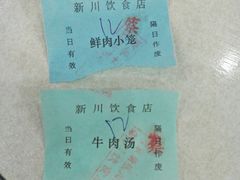 新川饮食店
当日有效
鲜肉小笼
隔日作废
新川饮食店
当日有效
牛肉汤
隔日作废